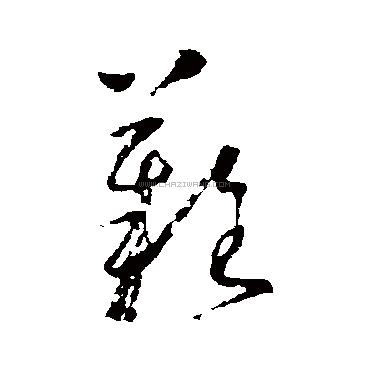 難
WWW.CHAZIWANG.COM